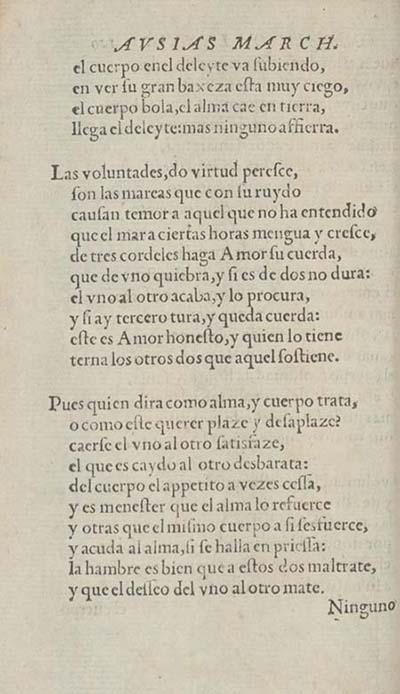 AVSIAS MARCH.
el cuerpo enel deleyte va ſubiendo,
en ver ſu gran baxeza eſta muy ciego,
el cuerpo bola, el alma cae en tierra,
llega el deleyte: mas ninguno aſſierra.
Las voluntades, do virtud pereſce,
ſon las mareas que con ſu ruydo
cauſan temor a aquel que no ha entendido
que el mar a ciertas horas mengua y creſce,
de tres cordeles haga Amor ſu cuerda,
que de vno quiebra, y ſi es de dos no dura:
el vno al otro acaba, y lo procura,
y ſi ay tercero tura, y queda cuerda:
eſte es Amor honeſto, y quien lo tiene
terna los otros dos que aquel ſoſtiene.
Pues quien dira como alma, y cuerpo trata,
o como eſte querer plaze y deſaplaze?
caerſe el vno al otro ſatisfaze,
el que es caydo al otro desbarata:
del cuerpo el appetito a vezes ceſſa,
y es meneſter que el alma lo refuerce
y otras que el miſmo cuerpo a ſi ſesfuerce,
y acuda al alma, ſi ſe halla en prieſſa:
la hambre es bien que a eſtos dos maltrate,
y que el deſſeo del vno al otro mate.
Ninguno